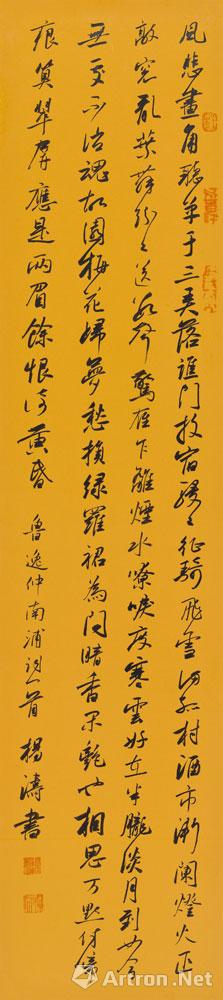 風悲畫角聽單于三弄落譙門投宿駸々征騎飛雪滿孤村酒市漸闌燈火正
敲窗亂葉舞紛々送數聲驚雁下離煙水嘹唳度寒雲好在半朧淡月到如今
無處不消魂故園梅花歸夢愁損綠羅裙為問暗香閒艷也相思万點付啼
痕算翠屏應是兩眉餘恨倚黃昏 魯逸仲南浦詞一首 楊濤書
Artron.Net